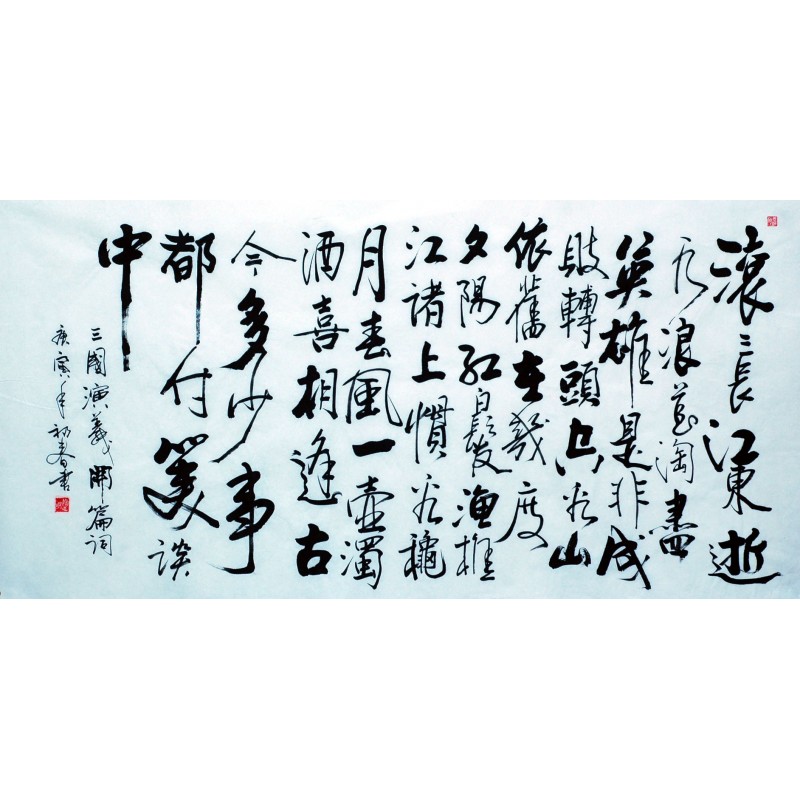 滾〻長江東逝
水浪花淘盡
英雄是非成
敗轉頭空青山
依舊在幾度
夕陽紅白髮漁樵
江渚上慣看穐
月春風一壺濁
酒喜相逢古
今多少事
都付笑談
中
三國演義開篇詞
庚寅年初春書